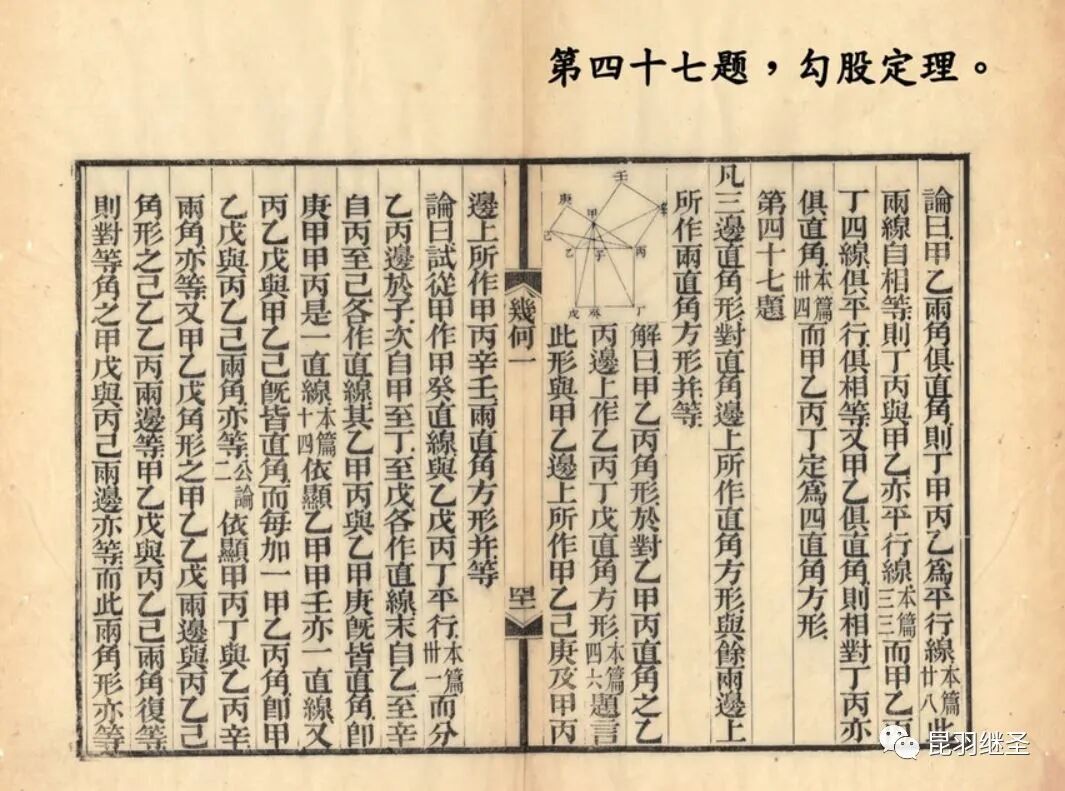 第四十七题，勾股定理。
論曰甲乙兩角俱直角則丁甲丙乙爲平行線本篇廿八此
兩線自相等則丁丙與甲乙亦平行線本篇三三而甲乙丙
丁四線俱平行俱相等又甲乙俱直角則相對丁丙亦
俱直角本篇卅四而甲乙丙丁定爲四直角方形
第四十七題
凡三邊直角形對直角邊上所作直角方形與餘兩邊上
所作兩直角方形并等
壬
庚
辛
甲
己
乙
子
丙
戊
癸
丁
解曰甲乙丙角形於對乙甲丙直角之乙
丙邊上作乙丙丁戊直角方形本篇四六題言
此形與甲乙邊上所作甲乙己庚及甲丙
幾何一
邊上所作甲丙辛壬兩直角方形并等
論曰試從甲作甲癸直線與乙戊丙丁平行本篇卅一而分
乙丙邊於子次自甲至丁至戊各作直線末自乙至辛
自丙至己各作直線其乙甲丙與乙甲庚旣皆直角卽
庚甲甲丙是一直線本篇十四依顯乙甲甲壬亦一直線又
丙乙戊與甲乙己旣皆直角而每加一甲乙丙角卽甲
乙戊與丙乙己兩角亦等公論二依顯甲丙丁與乙丙辛
兩角亦等又甲乙戊角形之甲乙乙戊兩邊與丙乙己
角形之己乙乙丙兩邊等甲乙戊與丙乙己兩角復等
則對等角之甲戊與丙己兩邊亦等而此兩角形亦等
昆羽继圣